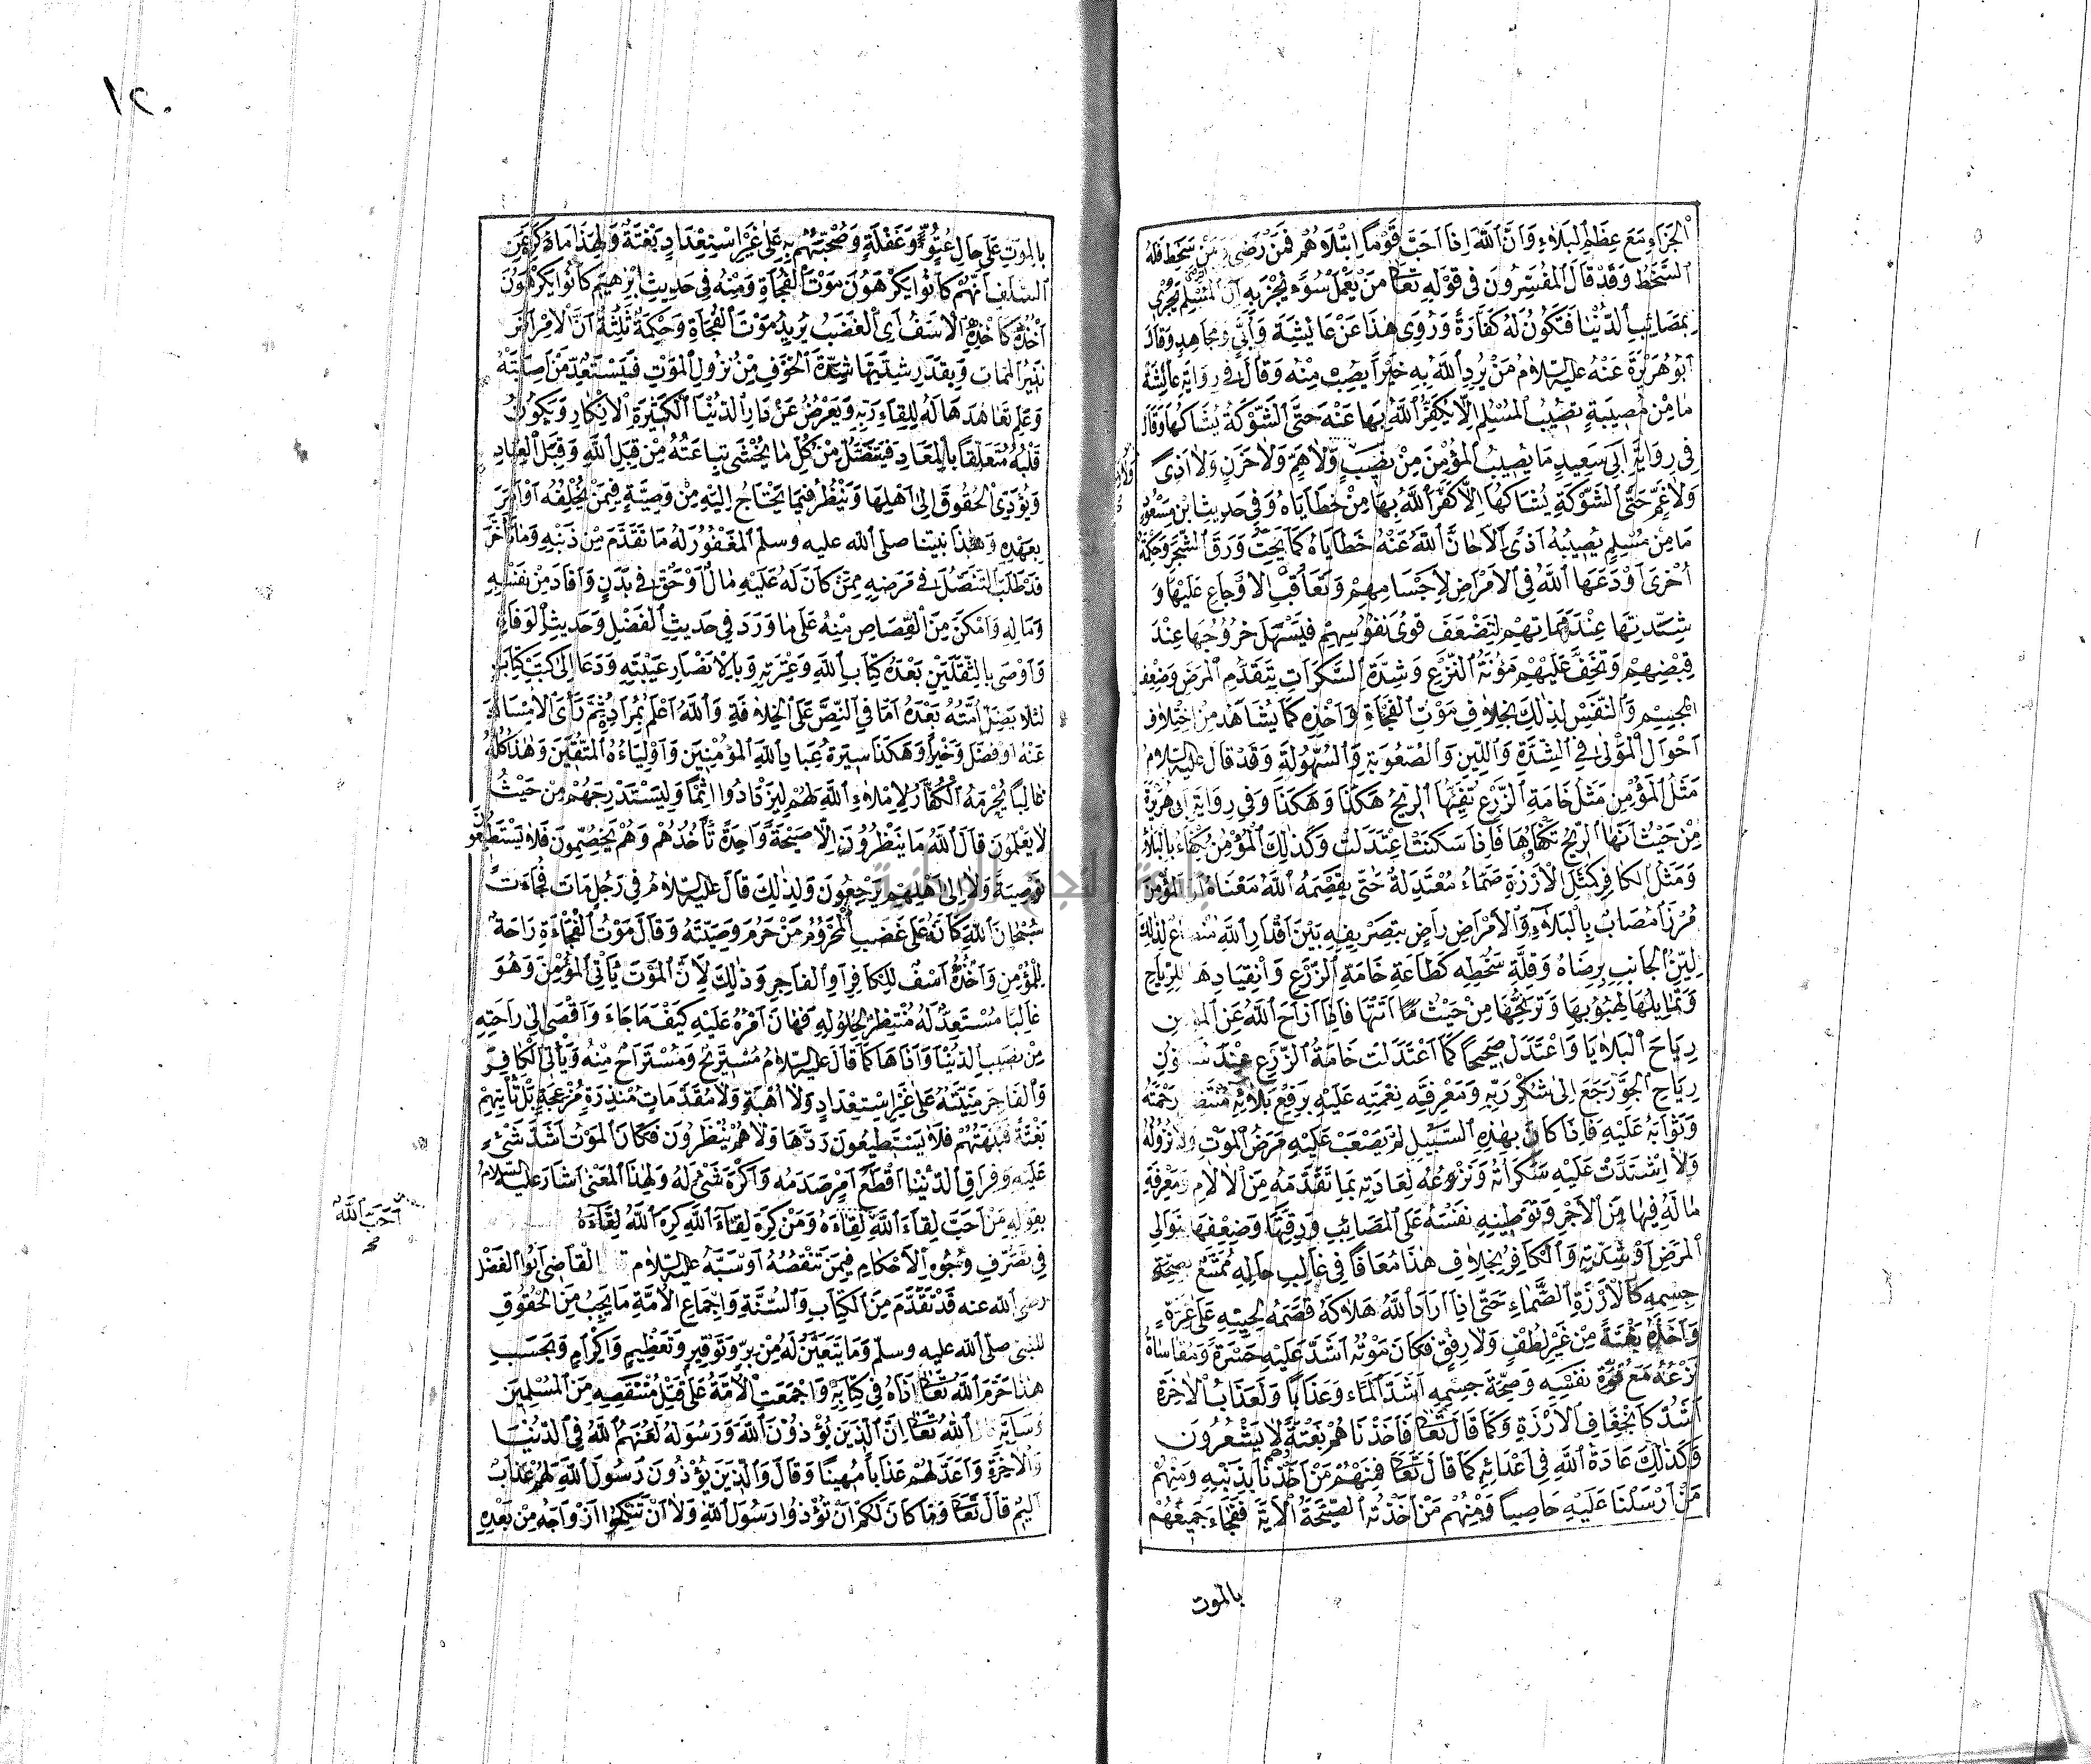 اَلْجَزَاءِ مَعَ عِظَمِ الْبَلَاءِ وَاَنَّ اللهَ اِذَا اَحَبَّ قَوْمًا اِبْتَلَاهُمْ فَمَنْ رَضِىَ وَمَنْ سَخِطَ فَلَهُ
السَّخَطُ وَقَدْ قَالَ الْمُفَسِّرُونَ فِى قَوْلِهِ تَعَالَى مَنْ يَعْمَلْ سُوْءً يُجْزَ بِهِ اَنَّ الْمُسْلِمَ يُجْزَى
بِمَصَائِبِ الدُّنْيَا فَتَكُونُ لَهُ كَفَّارَةً وَرُوِىَ هٰذَا عَنْ عَائِشَةَ وَاُبَىٍّ وَمُجَاهِدٍ وَقَالَ
اَبُو هُرَيْرَةَ عَنْهُ عليه السلامُ مَنْ يُرِدِ اللهُ بِهِ خَيْرًا يُصِبْ مِنْهُ وَقَالَ فِى رِوَايَةِ عَائِشَةَ
مَا مِنْ مُصِيبَةٍ تُصِيبُ الْمُسْلِمَ اِلَّا يُكَفِّرُ اللهُ بِهَا عَنْهُ حَتَّى الشَّوْكَةُ يُشَاكُهَا وَقَالَ
فِى رِوَايَةِ اَبِى سَعِيدٍ مَا يُصِيبُ الْمُؤْمِنَ مِنْ نَصَبٍ وَلَا هَمٍّ وَلَا حَزَنٍ وَلَا اَذًى
وَلَا غَمٍّ حَتَّى الشَّوْكَةِ يُشَاكُهَا اِلَّا كَفَّرَ اللهُ بِهَا مِنْ خَطَايَاهُ وَفِى حَدِيثِ ابْنِ مَسْعُودٍ
مَا مِنْ مُسْلِمٍ يُصِيبُهُ اَذًى اَلَّا حَاتَّ اللهُ عَنْهُ خَطَايَاهُ كَمَا يُحَتُّ وَرَقُ الشَّجَرِ وَحِكْمَةٌ
اُخْرَى اَوْدَعَهَا اللهُ فِى الْاَمْرَاضِ لِاَجْسَامِهِمْ وَتَعَاقُبِ الْاَوْجَاعِ عَلَيْهَا وَ
شِدَّتِهَا عِنْدَ مَمَاتِهِمْ لِتَضْعَفَ قُوَى نُفُوسِهِمْ فَيَسْهَلَ خُرُوجُهَا عِنْدَ
قَبْضِهِمْ وَتَخِفَّ عَلَيْهِمْ مَؤُنَةُ النَّزْعِ وَشِدَّةِ السَّكَرَاتِ بِتَقَدُّمِ الْمَرَضِ وَضَعْفِ
الْجِسْمِ وَالنَّفْسِ لِذٰلِكَ بِخِلَافِ مَوْتِ الْفُجَاةِ وَاَخْذِهِ كَمَا يُشَاهَدُ مِنْ اِخْتِلَافِ
اَحْوَالِ الْمَوْتَى فِى الشِّدَّةِ وَاللِّينِ وَالصُّعُوبَةِ وَالسُّهُولَةِ وَقَدْ قَالَ عليه السلامُ
مَثَلُ الْمُؤْمِنِ مَثَلُ خَامَةِ الزَّرْعِ تُفِيئُهَا الرِّيحُ هٰكَذَا وَهٰكَذَا وَفِى رِوَايَةِ اَبِى هُرَيْرَةَ
مِنْ حَيْثُ اَتَتْهَا الرِّيحُ تَكْفَاؤُهَا فَاِذَا سَكَنَتْ اعْتَدَلَتْ وَكَذٰلِكَ الْمُؤْمِنُ يُكْفَاءُ بِالْبَلَاءِ
وَمَثَلُ الْكَافِرِ كَمَثَلِ الْاَرْزَةِ صَمَّاءُ مُعْتَدِلَةٌ حَتَّى يَقْصِمَهُ اللهُ مَعْنَاهُ اَنَّ الْمُؤْمِنَ
مُرَزَّأٌ مُصَابٌ بِالْبَلَاءِ وَالْاَمْرَاضِ رَاضٍ بِتَصْرِيفِهِ بَيْنَ اَقْدَارِ اللهِ لِذٰلِكَ
لَيِّنُ الْجَانِبِ بِرِضَاهُ وَقِلَّةِ سَخَطِهِ كَطَاعَةِ خَامَةِ الزَّرْعِ وَانْقِيَادِهَا لِلرِّيَاحِ
وَتَمَايُلِهَا لِهُبُوبِهَا وَتَرَنُّحِهَا مِنْ حَيْثُ مَا اَتَتْهَا فَاِذَا اَزَاحَ اللهُ عَنِ الْمُؤْمِنِ
رِيَاحَ الْبَلَايَا وَاعْتَدَلَ صَحِيحًا كَمَا اعْتَدَلَتْ خَامَةُ الزَّرْعِ عِنْدَ سُكُونِ
رِيَاحِ الْجَوِّ رَجَعَ اِلَى شُكْرِ رَبِّهِ وَمَعْرِفَةِ نِعْمَتِهِ عَلَيْهِ بِرَفْعِ بَلَائِهِ مُنْتَظِرًا رَحْمَتَهُ
وَثَوَابَهُ عَلَيْهِ فَاِذَا كَانَ بِهٰذِهِ السَّبِيلِ لَمْ يَصْعَبْ عَلَيْهِ مَرَضُ الْمَوْتِ وَلَا نُزُولُهُ
وَلَا اشْتَدَّتْ عَلَيْهِ سَكَرَاتُهُ وَنَزْعُهُ لِعَادَتِهِ بِمَا تَقَدَّمَهُ مِنَ الْاٰلَامِ وَمَعْرِفَةِ
مَا لَهُ فِيهَا مِنَ الْاَجْرِ وَتَوْطِينِهِ نَفْسَهُ عَلَى الْمَصَائِبِ وَرِقَّتِهَا وَضَعْفِهَا بِتَوَالِى
الْمَرَضِ اَوْ شِدَّتِهِ وَالْكَافِرُ بِخِلَافِ هٰذَا مُعَافًا فِى غَالِبِ حَالِهِ مُمَتَّعٌ بِصِحَّةِ
جِسْمِهِ كَالْاَرْزَةِ الصَّمَّاءِ حَتَّى اِذَا اَرَادَ اللهُ هَلَاكَهُ قَصَمَهُ لِحِينِهِ عَلَى غِرَّةٍ
وَاَخَذَهُ بَغْتَةً مِنْ غَيْرِ لُطْفٍ وَلَا رِفْقٍ فَكَانَ مَوْتُهُ اَشَدَّ عَلَيْهِ حَسْرَةً وَمُقَاسَاةُ
نَزْعِهِ مَعَ قُوَّةِ نَفْسِهِ وَصِحَّةِ جِسْمِهِ اَشَدَّ اَلَمًا وَعَذَابًا وَلَعَذَابُ الْاٰخِرَةِ
اَشَدُّ كَانْجِعَافِ الْاَرْزَةِ وَكَمَا قَالَ تَعَالَى فَاَخَذْنَاهُمْ بَغْتَةً وَهُمْ لَا يَشْعُرُونَ
وَكَذٰلِكَ عَادَةُ اللهِ فِى اَعْدَائِهِ كَمَا قَالَ تَعَالَى فَمِنْهُمْ مَنْ اَخَذْنَا بِذَنْبِهِ وَمِنْهُمْ
مَنْ اَرْسَلْنَا عَلَيْهِ حَاصِبًا وَمِنْهُمْ مَنْ اَخَذَتْهُ الصَّيْحَةُ الْاٰيَةَ فَفَجَاءَ جَمِيعَهُمْ
بالموت
١٢٠
بِالْمَوْتِ عَلَى حَالِ عُتُوٍّ وَغَفْلَةٍ وَصَبَّحَهُمْ بِهِ عَلَى غَيْرِ اسْتِعْدَادٍ بَغْتَةً وَلِهٰذَا مَا ذُكِرَ عَنِ
السَّلَفِ اَنَّهُمْ كَانُوا يَكْرَهُونَ مَوْتَ الْفُجَاةِ وَمِنْهُ فِى حَدِيثِ اِبْرٰهِيمَ كَانُوا يَكْرَهُونَ
اَخْذَةً كَاَخْذَةِ الْاَسَفِ اَىِ الْغَضَبِ يُرِيدُ مَوْتَ الْفُجَاةِ وَحِكْمَةٌ ثَالِثَةٌ اَنَّ الْاَمْرَاضَ
نَذِيرُ الْمَمَاتِ وَبِقَدْرِ شِدَّتِهَا شِدَّةُ الْخَوْفِ مِنْ نُزُولِ الْمَوْتِ فَيَسْتَعِدُّ مَنْ اَصَابَتْهُ
وَعَلِمَ تَعَاهُدَهَا لَهُ لِلِقَاءِ رَبِّهِ وَيُعْرِضُ عَنْ دَارِ الدُّنْيَا الْكَثِيرَةِ الْاَنْكَارِ وَيَكُونُ
قَلْبُهُ مُتَعَلِّقًا بِالْمَعَادِ فَيَتَنَصَّلُ مِنْ كُلِّ مَا يَخْشَى تِبَاعَتَهُ مِنْ قِبَلِ اللهِ وَقِبَلِ الْعِبَادِ
وَيُؤَدِّى الْحُقُوقَ اِلَى اَهْلِهَا وَيَنْظُرُ فِيمَا يَحْتَاجُ اِلَيْهِ مِنْ وَصِيَّةٍ فِيمَنْ يُخَلِّفُهُ اَوْ اَمْرٍ
يَعْهَدُهُ وَهٰذَا نَبِيُّنَا صلى الله عليه وسلم الْمَغْفُورُ لَهُ مَا تَقَدَّمَ مِنْ ذَنْبِهِ وَمَا تَاَخَّرَ
قَدْ طَلَبَ التَّنَصُّلَ فِى مَرَضِهِ مِمَّنْ كَانَ لَهُ عَلَيْهِ مَالٌ اَوْ حَقٌّ فِى بَدَنٍ وَاَقَادَ مِنْ نَفْسِهِ
وَمَالِهِ وَاَمْكَنَ مِنَ الْقِصَاصِ مِنْهُ عَلَى مَا وَرَدَ فِى حَدِيثِ الْفَضْلِ وَحَدِيثِ الْوَفَاةِ
وَاَوْصَى بِالثَّقَلَيْنِ بَعْدَهُ كِتَابِ اللهِ وَعِتْرَتِهِ وَبِالْاَنْصَارِ عَيْبَتِهِ وَدَعَا اِلَى كَتْبِ كِتَابٍ
لِئَلَّا يَضِلَّ اُمَّتُهُ بَعْدَهُ اَمَّا فِى النَّصِّ عَلَى الْخِلَافَةِ وَاللهُ اَعْلَمُ بِمُرَادِهِ ثُمَّ رَأَى الْاِمْسَاكَ
عَنْهُ اَفْضَلَ وَخَيْرًا وَهٰكَذَا سِيرَةُ عِبَادِ اللهِ الْمُؤْمِنِينَ وَاَوْلِيَاءُهُ الْمُتَّقِينَ وَهٰذَا كُلُّهُ
غَالِبًا يُحْرَمُهُ الْكُفَّارُ لِاِمْلَاءِ اللهِ لَهُمْ لِيَزْدَادُوا اِثْمًا وَلِيَسْتَدْرِجَهُمْ مِنْ حَيْثُ
لَا يَعْلَمُونَ قَالَ اللهُ مَا يَنْظُرُونَ اِلَّا صَيْحَةً وَاحِدَةً تَأْخُذُهُمْ وَهُمْ يَخِصِّمُونَ فَلَا يَسْتَطِيعُونَ
تَوْصِيَةً وَلَا اِلَى اَهْلِهِمْ يَرْجِعُونَ وَلِذٰلِكَ قَالَ عليه السلامُ فِى رَجُلٍ مَاتَ فُجَاءَةً
سُبْحَانَ اللهِ كَاَنَّهُ عَلَى غَضَبٍ الْمَحْرُومُ مَنْ حُرِمَ وَصِيَّتَهُ وَقَالَ مَوْتُ الْفُجَاءَةِ رَاحَةٌ
لِلْمُؤْمِنِ وَاَخْذَةُ اَسَفٍ لِلْكَافِرِ اَوِ الْفَاجِرِ وَذٰلِكَ لِاَنَّ الْمَوْتَ يَأْتِى الْمُؤْمِنَ وَهُوَ
غَالِبًا مُسْتَعِدٌّ لَهُ مُنْتَظِرٌ لِحُلُولِهِ فَهَانَ اَمْرُهُ عَلَيْهِ كَيْفَ مَا جَاءَ وَاَفْضَى اِلَى رَاحَتِهِ
مِنْ نَصَبِ الدُّنْيَا وَاَذَاهَا كَمَا قَالَ عليه السلامُ مُسْتَرِيحٌ وَمُسْتَرَاحٌ مِنْهُ وَيَأْتِى الْكَافِرَ
وَالْفَاجِرَ مَنِيَّتُهُ عَلَى غَيْرِ اسْتِعْدَادٍ وَلَا اُهْبَةٍ وَلَا مُقَدَّمَاتٍ مُنْذِرَةٍ مُزْعِجَةٍ بَلْ تَأْتِيهِمْ
بَغْتَةً فَتَبْهَتُهُمْ فَلَا يَسْتَطِيعُونَ رَدَّهَا وَلَا هُمْ يُنْظَرُونَ فَكَانَ الْمَوْتُ اَشَدَّ شَىْءٍ
عَلَيْهِ وَفِرَاقُ الدُّنْيَا اَفْظَعَ اَمْرٍ صَدَمَهُ وَاَكْرَهَ شَىْءٍ لَهُ وَلِهٰذَا الْمَعْنَى اَشَارَ عليه السلامُ
بِقَوْلِهِ مَنْ اَحَبَّ لِقَاءَ اللهِ لِقَاءَهُ وَمَنْ كَرِهَ لِقَاءَ اللهِ كَرِهَ اللهُ لِقَاءَهُ
اَحَبَّ اللهُ
فِى تَصَرُّفِ وُجُوهِ الْاَحْكَامِ فِيمَنْ تَنَقَّصَهُ اَوْ سَبَّهُ عليه السلام الْقَاضِى اَبُو الْفَضْلِ
رضى الله عنه قَدْ تَقَدَّمَ مِنَ الْكِتَابِ وَالسُّنَّةِ وَاِجْمَاعِ الْاُمَّةِ مَا يَجِبُ مِنَ الْحُقُوقِ
للنبى صلى الله عليه وسلم وَمَا يَتَعَيَّنُ لَهُ مِنْ بِرٍّ وَتَوْقِيرٍ وَتَعْظِيمٍ وَاِكْرَامٍ وَبِحَسَبِ
هٰذَا حَرَّمَ اللهُ تَعَالَى اَذَاهُ فِى كِتَابِهِ وَاجْمَعَتِ الْاُمَّةُ عَلَى قَتْلِ مُتَنَقِّصِهِ مِنَ الْمُسْلِمِينَ
وَسَابِّهِ اللهُ تَعَالَى اِنَّ الَّذِينَ يُؤْذُونَ اللهَ وَرَسُولَهُ لَعَنَهُمُ اللهُ فِى الدُّنْيَا
وَالْاٰخِرَةِ وَاَعَدَّ لَهُمْ عَذَابًا مُهِينًا وَقَالَ وَالَّذِينَ يُؤْذُونَ رَسُولَ اللهِ لَهُمْ عَذَابٌ
اَلِيمٌ قَالَ تَعَالَى وَمَا كَانَ لَكُمْ اَنْ تُؤْذُوا رَسُولَ اللهِ وَلَا اَنْ تَنْكِحُوا اَزْوَاجَهُ مِنْ بَعْدِهِ